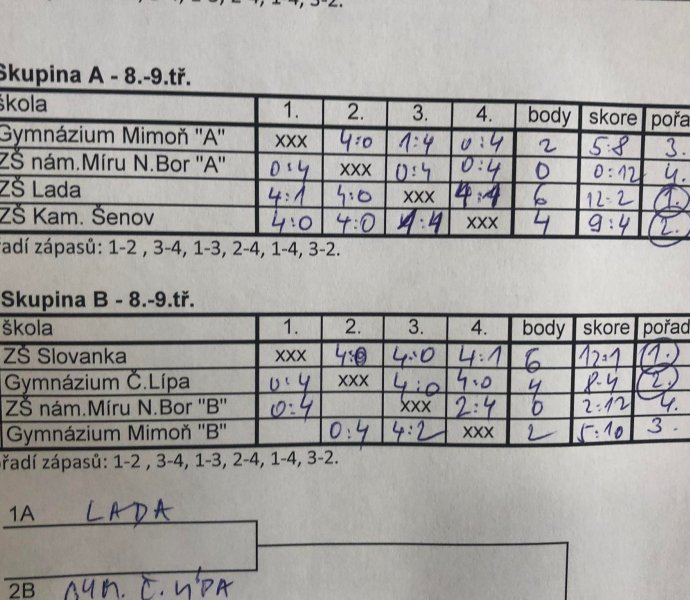 Skupina A - 8.-9.tř.
škola 1. 2. 3. 4. body skore pořa
Gymnázium Mimoň "A" xxx 4:0 1:4 0:4 2 5:8 3.
ZŠ nám.Míru N.Bor "A" 0:4 xxx 0:4 0:4 0 0:12 4.
ZŠ Lada 4:1 4:0 xxx 4:1 6 12:2 1.
ZŠ Kam. Šenov 4:0 4:0 1:4 xxx 4 9:4 2.
řadí zápasů: 1-2 , 3-4, 1-3, 2-4, 1-4, 3-2.
Skupina B - 8.-9.tř.
škola 1. 2. 3. 4. body skore pořad
ZŠ Slovanka xxx 4:0 4:0 4:1 6 12:1 1.
Gymnázium Č.Lípa 0:4 xxx 4:0 4:0 4 8:4 2.
ZŠ nám.Míru N.Bor "B" 0:4 xxx 2:4 0 2:12 4.
Gymnázium Mimoň "B" 0:4 4:2 xxx 2 5:10 3.
ořadí zápasů: 1-2 , 3-4, 1-3, 2-4, 1-4, 3-2.
1A LADA
2B GYM. Č. LÍPA